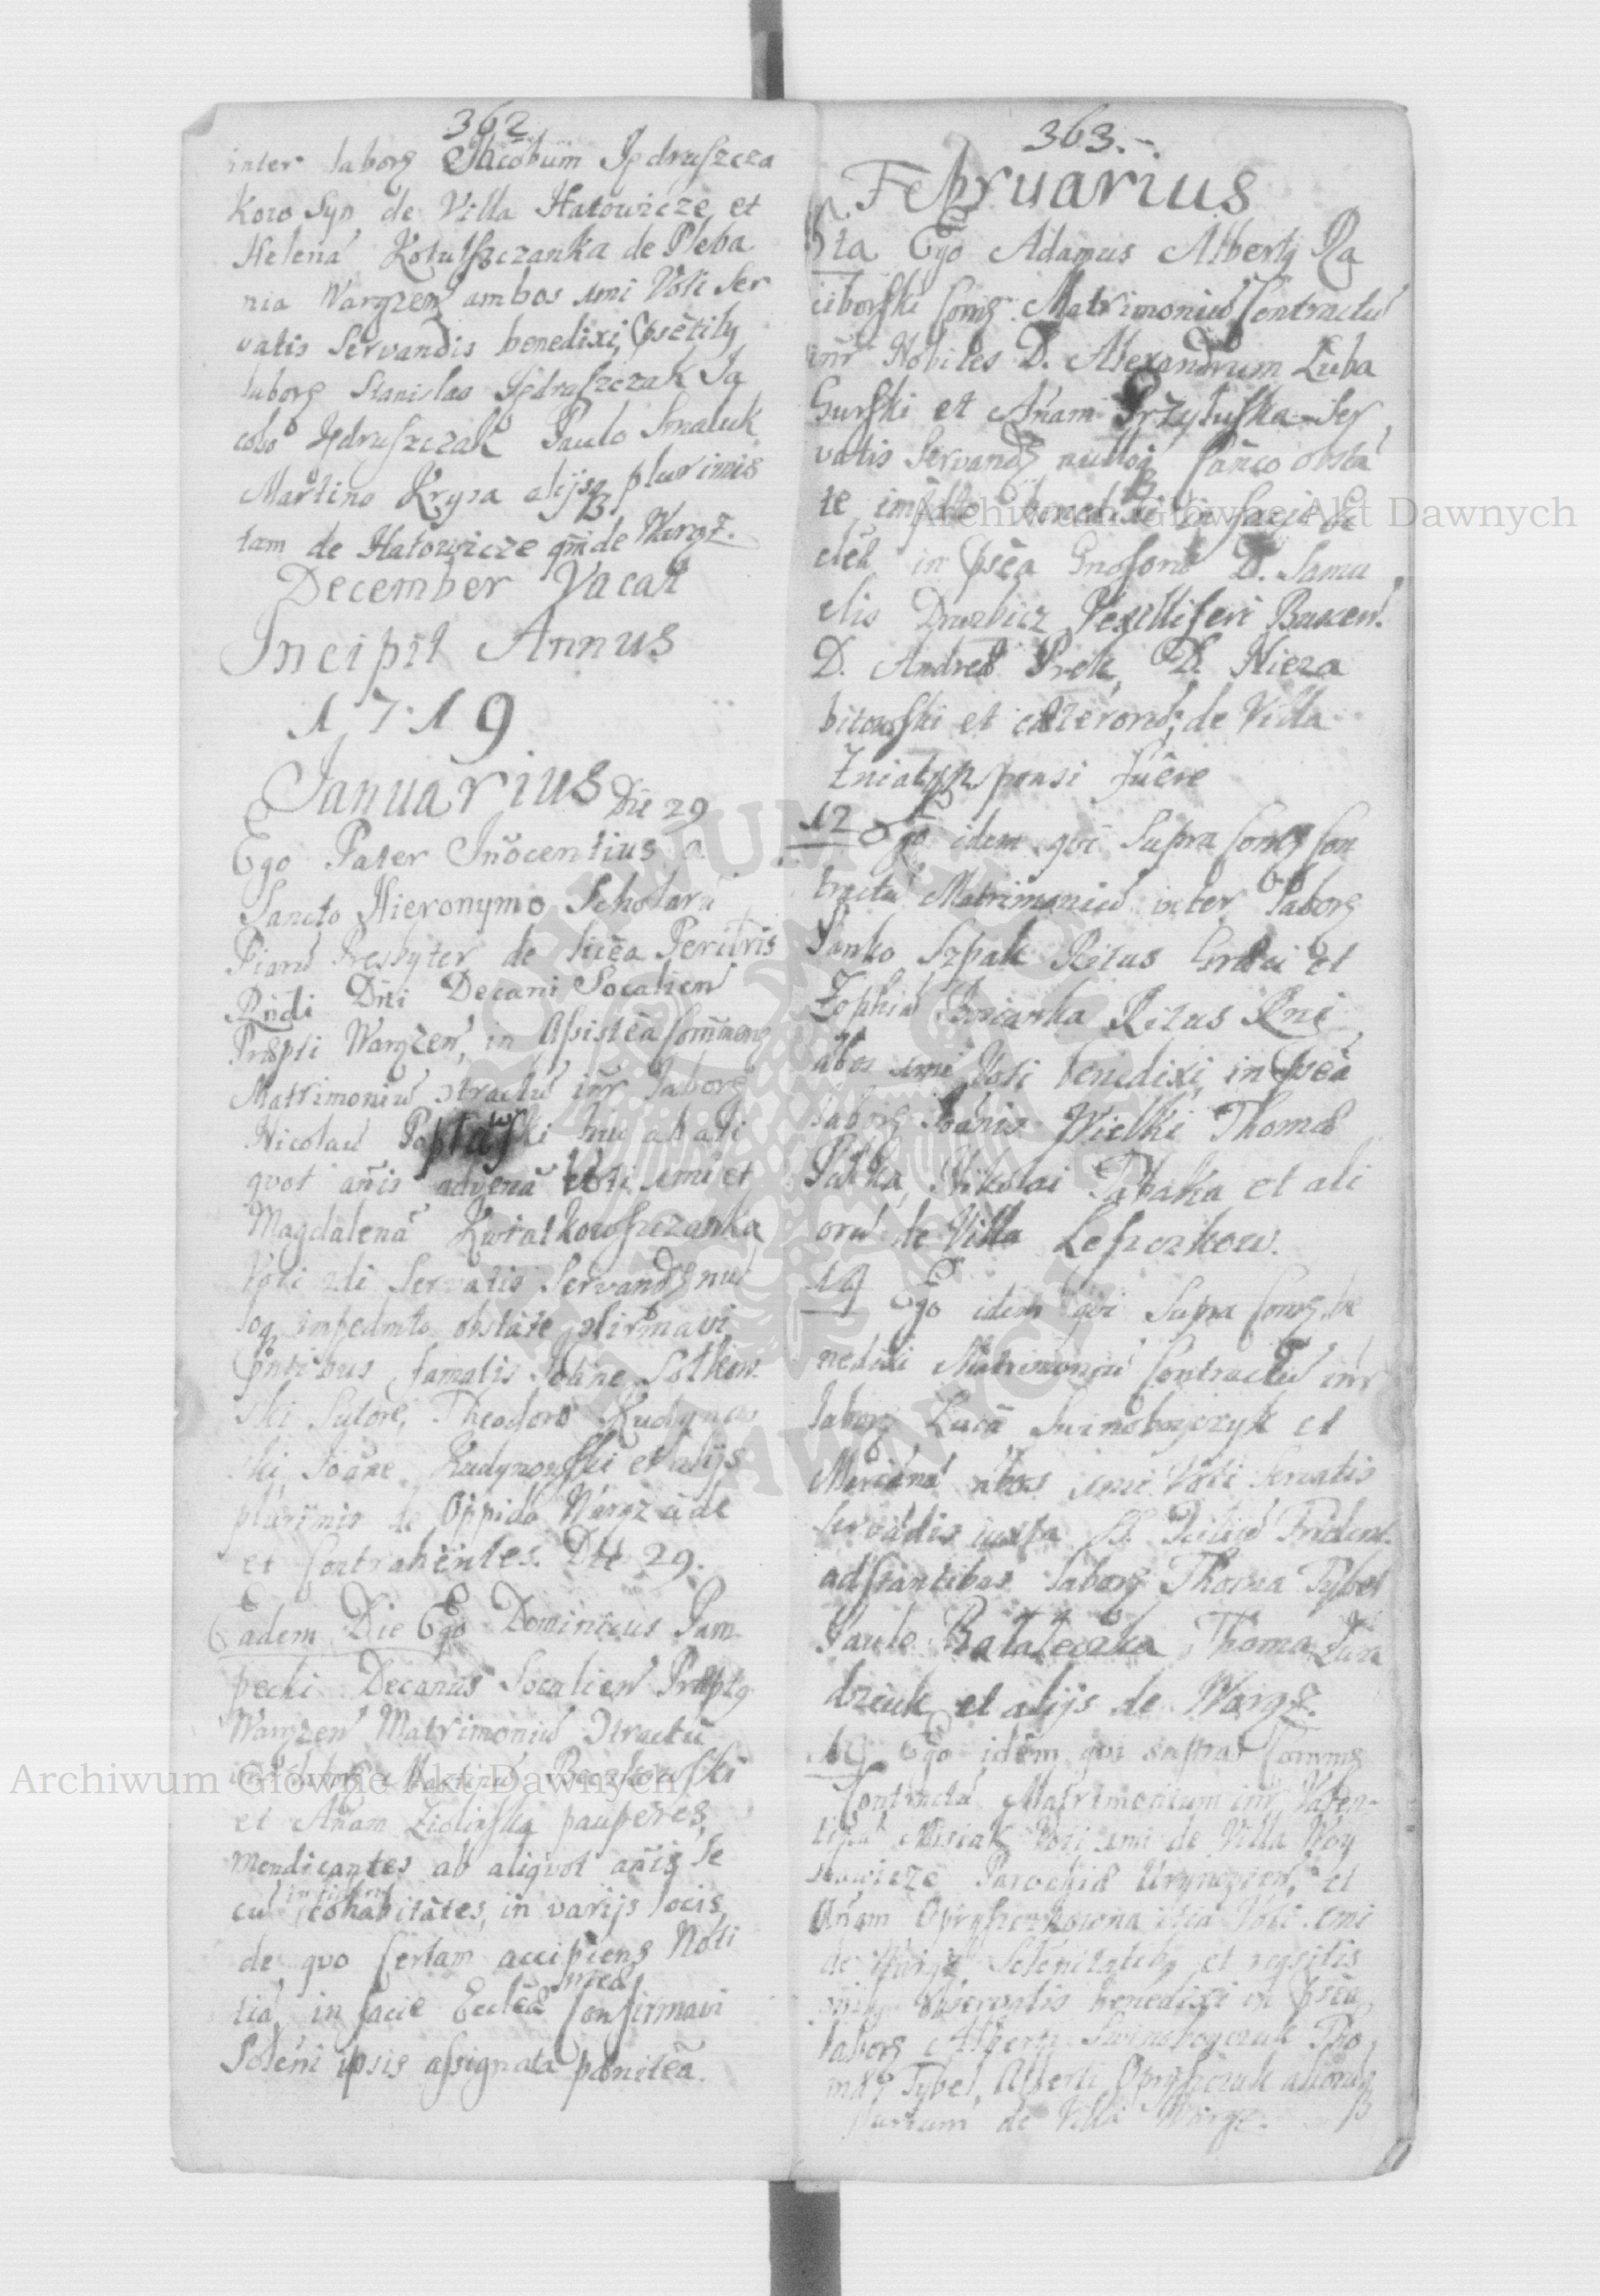 362
inter laborg Jacobum Jędruszcza
kow Syn de Villa Hatowicze et
Helenã Kotulszczanka de Pleba
nia Waręzeñ ambos 1mi Voti Ser
vatis Servandis benedixi, Psẽtibg
laborg Stanislao Jędruszczak Ja
cobo Jędruszczak Paulo Smaluk
Martino Krysa alijsq plurimis
tam de Hatowicze qm de Waręż.
December Vacat
Incipit Annus
1719
Januarius Die 29
Ego Pater Iñocentius a
Sancto Hieronymo Scholarũ
Piarũ Presbyter de licẽa Perillris
Rñdi Dñi Decani Socalieñ
Præpti Waręzeñ, in Assistẽa
Matrimoniũ Ɔtractũ iñr laborg
Nicolaũ ab ali
qvot añis advenã Voti 1mi et
Magdalenã Kwiatkowszczanka
Voti 2di Servatis Servandg nul
loq impedmto obstãte Ɔfirmavi
Psñtibus famatis Joãne Sotkiew
ski Sutore, Theodoro Rudynow
ski Joãne Rudynowski et alijs
plurimis de Oppido Waręz ũde
et Contrahentes. Die 29.
Eadem Die Ego Dominicus Pam
pecki Decanus Socalieñ Præptg
Waręzeñ Matrimoniũ Ɔtractũ
iñr laborg Martinũ Beczkowski
et Añam Zielinska pauperes,
Mendicantes ab aliqvot añis Se
cũ cohabitãtes, in varijs locis
de qvo Certam accipiens Noti
tiã, in facie Ecclæ meæ Confirmavi
Solẽni ipsis assignata pænitẽa.
363.-.
Februarius
5ta Ego Adamus Albertg Ra
ciborski Coms Matrimoniũ Contractũ
iñr Nobiles D. Alexandrum Luba
Gurski et Añam Przyłuska Ser
vatis Servandg nulloq Cañco obstã
te impdto benedixi in facie Ec
clæ in Psẽa Gnosorũ D. Samu
elis Druzbicz Vexilliferi Buscen.
D. Andreæ Prek, D. Nieza
bitowski et cæterorũ, de Villa
Zniatyn sponsi fuẽre
12 Ego idem qvi Supra Coms Con
tractũ Matrimoniũ inter laborg
Panko Szpak Ritus Græci et
Zophiã Ritus Rni
ãbos 1mi Voti benedixi, in Psẽa
laborg Joãnis Wielki Thomæ
Patka, Nikolai Tabaka et ali
orũ de Villa Leszczkow.
19 Ego idem qvi Supra Coms be
nedixi Matrimoniũ Contractũ iñr
laborg Lucã Swinoboyczyk et
Mariãnã ãbos 1mi Voti Servatis
Servãdis iuxta SS. Trident.
adstantibus laborg Thoma Tybel
Paulo Bataleczka Thoma Zura
dziuk et alijs de Waręż.
19 Ego idem qvi supra Comms
Contractũ Matrimonium iñr Valen-
tinũ Misiak Voti 1mi de Villa Woy
slawicze Parochiæ et
Añam Opryszczkowna itia Voti 1mi
de Waręż Solẽnitatibg et reqsitis
omibg observatis benedixi in Psẽa
laborg Alberti Swinoboyczuk Tho
mæ Tybel, Alberti Opryszczuk aliorũq
plurium de Villa Waręż.
Archiwum Główne Akt Dawnych
Archiwum Główne Akt Dawnych
ARCHIWUM GŁÓWNE AKT DAWNYCH